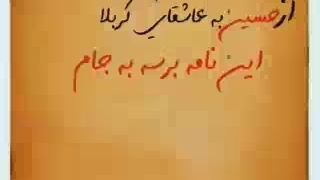 از حسین به عاشقان کربلا
این نامه برسه به جام